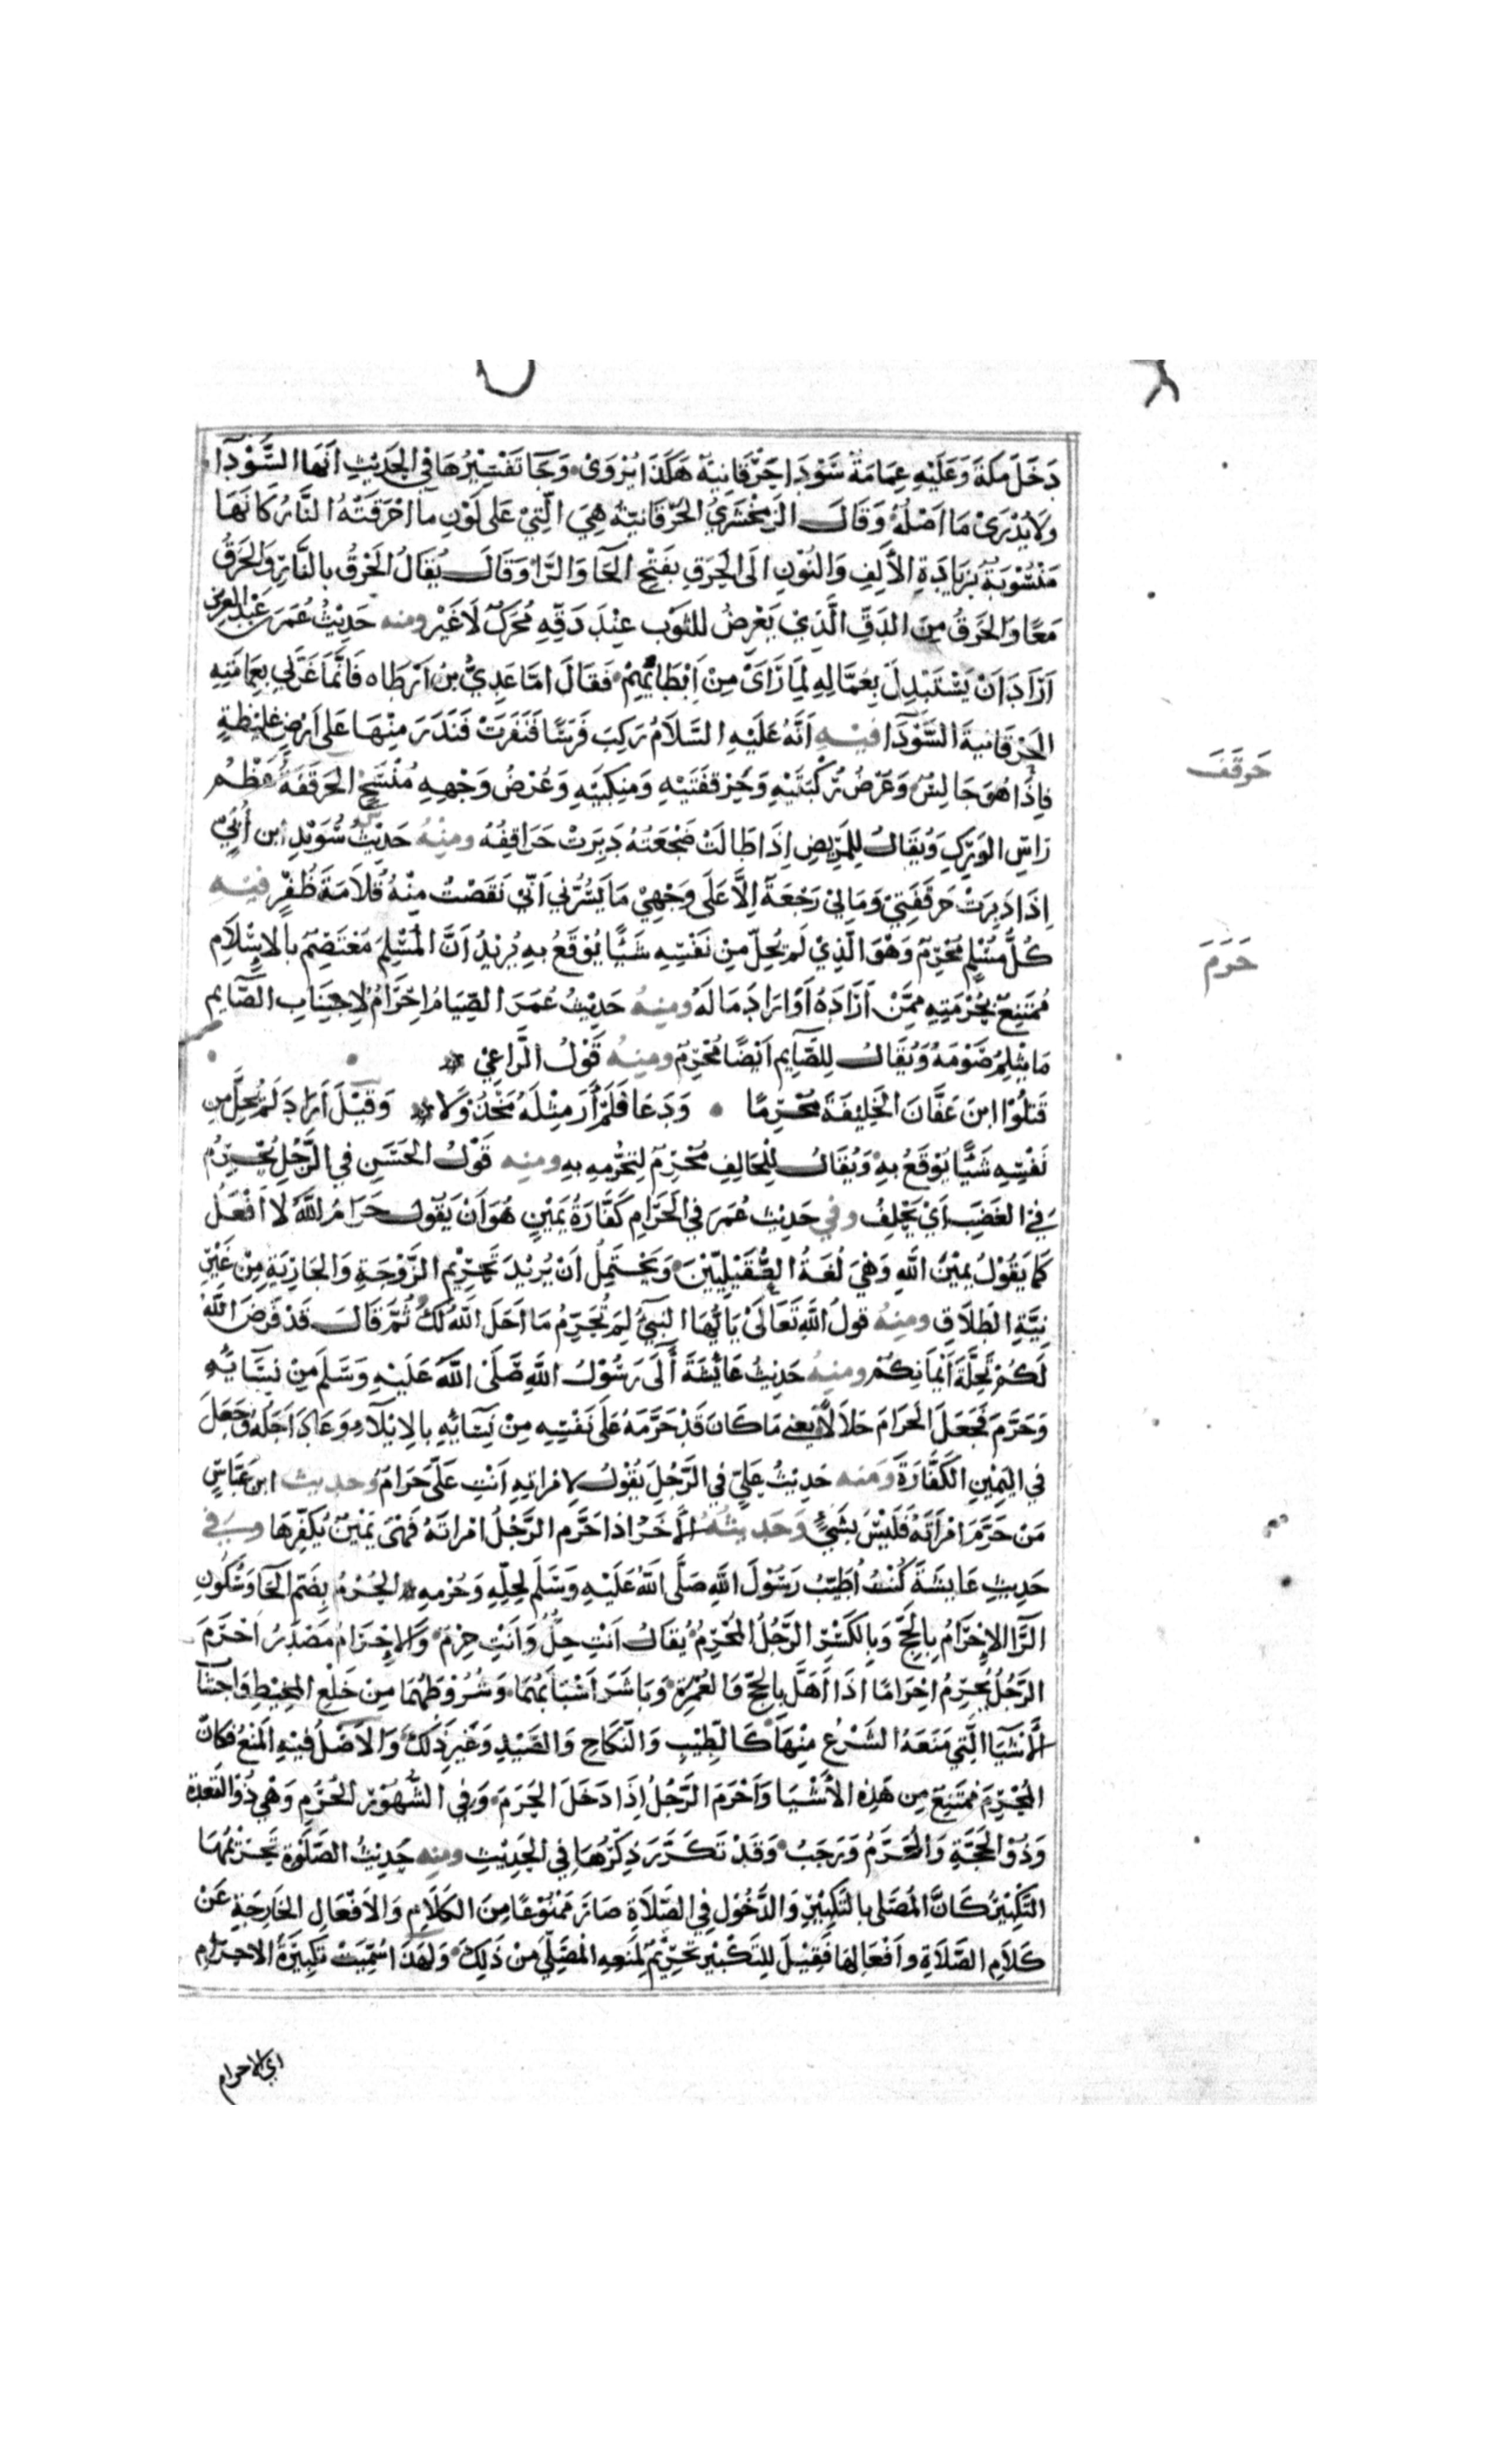 دَخَلَ مَكَّةَ وَعَلَيْهِ عِمَامَةٌ سَوْدَا حَرَقَانِيَّة هَكَذَا يُرْوَى وَجَا تَفْسِيْرُهَا فِي الْحَدِيْثِ اَنَّهَا السَّوْدَآ
وَلَا يُدْرَىْ مَا اَصْلُهُ وَقَالَ الزَمَخْشَرِيُّ الحَرَقَانِيَّةُ هِيَ الَّتِيْ عَلَى لَوْنِ مَا اَحْرَقَتْهُ النَّارُ كَاَنَّهَا
مَنْسُوْبَةٌ بِزِيَادَةِ الْأَلِفِ وَالنُّوْنِ اِلَى الْحَرَقِ بِفَتْحِ الْحَا وَالرَّا وَقَالَ يُقَالُ الْحَرْقُ بِالنَّارِ وَالْحَرَقُ
مَعًا وَالْحَرَقُ مِنَ الدَقِّ الَّذِيْ يَعْرِضُ لِلثَوْبِ عِنْدَ دَقِّهِ مُحَرَّكٌ لَا غَيْرُ ومنه حَدِيْثُ عُمَرَ بن عَبْدِ العزيز
اَرَادَ اَنْ يَسْتَبْدِلَ بِعُمَّالِهِ لِمَا رَاَىْ مِنْ اِبْطَائِهِمْ فَقَالَ اَمَّا عَدِيُّ بْنُ اَرْطَاه فَاِنَّمَا غَرَّنِي بِعِمَامَتِهِ
الحَرَقَانِيَةِ السَّوْدَآ فيْهِ اَنَّهُ عَلَيْهِ السَّلَامُ رَكِبَ فَرَسًا فَنَفَرَتْ فَنَدَرَ مِنْهَا عَلَى اَرْضٍ غَلِيْظَةٍ
فَاِذَا هُوَ جَالِسٌ وَعُرْضُ رُكْبَتَيْهِ وَحَرْقَفَتَيْهِ وَمَنْكِبَيْهِ وَعُرْضُ وَجْهِهِ مُنْسَحٍ الحَرْقَفَةُ عَظْمُ
رَاسِ الوَرِكِ وَيُقَالُ لِلْمَرِيضِ اِذَا طَالَتْ ضَجْعَتُهُ دَبِرَتْ حَرَاقِفُهُ ومِنْهُ حَدِيْثُ سُوَيْدِ
اِذَا دَبِرَتْ حَرْقَفَتِيْ وَمَالِيْ رَجْعَةٌ اِلَّا عَلَى وَجْهِيْ مَا يَسُرُّنِي اَنِّيْ نَقَصْتُ مِنْهُ قُلَامَةَ ظُفْرٍ فيه
كُلُّ مُسْلِمٍ مُحْرِمٌ وَهُوَ الَّذِيْ لَمْ يُحِلَّ مِنْ نَفْسِهِ شَيْئًا يُوْقَعُ بِهِ يُرِيْدُ اَنَّ الْمُسْلِمَ مُعْتَصِمٌ بِالْإِسْلَامِ
مُمْتَنِعٌ بِحُرْمَتِهِ مِمَّنْ اَرَادَهُ اَوْ اَرَادَ مَالَهُ ومِنهُ حَدِيْثُ عُمَرَ الصِّيَامُ اِحْرَامٌ لِاجْتِنَابِ الصَّآيِمِ
مَا يَثْلِمُ صَوْمَهُ وَيُقَالُ لِلصَّآيِمِ اَيْضًا مُحْرِمٌ ومِنهُ قَوْلُ الرَّاعِيْ
قَتَلُوْا ابْنَ عَفَّانَ الْخَلِيْفَةَ مُحْرِمًا وَدَعَا فَلَمْ أَرَ مِثْلَهُ مَخْذُوْلَا وَقِيْلَ اَرَادَ لَمْ يُحِلَّ مِن
نَفْسِهِ شَيًْا يُوْقَعُ بِهِ وَيُقَالُ لِلْحَالِفِ مُحْرِمٌ لِتَحَرُّمِهِ بِهِ ومنه قَوْلُ الحَسَنِ فِي الرَّجُلِ يُحْرِمُ
فِي الغَضَبِ اَيْ يَحْلِفُ وفي حَدِيْثِ عُمَرَ فِي الْحَرَامِ كَفَّارَةُ يَمِيْنٍ هُوَ اَنْ يَقُوْلَ حَرَامُ اللهِ لَا اَفْعَلُ
كَمَا يَقُوْلُ يَمِيْنُ اللهِ وَهْيَ لُغَةُ العُقَيْلِيِّيْنَ وَيَحْتَمِلُ اَنْ يُرِيْدَ تَحْرِيْمَ الزَّوْجَةِ وَالْجَارِيَةِ مِنْ غَيْرِ
نِيَّةِ الطَّلَاقِ ومِنهُ قَوْلُ اللهِ تَعَالَىْ يَاَيُّهَا النَبِيُّ لِمَ تُحَرِّمُ مَا اَحَلَّ اللهُ لَكَ ثُمَّ قَالَ قَدْ فَرَضَ اللهُ
لَكُمْ تَحِلَّةَ اَيْمَانِكُمْ ومنهُ حَدِيْثُ عَائِشَةَ آلَى رَسُوْلُ اللهِ صَلَّى اللهُ عَلَيْهِ وَسَلَّمَ مِنْ نِسَآئِهِ
وَحَرَّمَ فَجَعَلَ الْحَرَامَ حَلَالًا يعني مَا كَانَ قَدْ حَرَّمَهُ عَلَى نَفْسِهِ مِنْ نِسَائِهِ بِالْاِيْلَآءِ وَعَادَ اَحَلَّهُ وَجَعَلَ
فِي الْيَمِيْنِ الكَفَّارَةَ وَمنه حَدِيْثُ عَلِيٍّ فِي الرَّجُلِ يَقُوْلُ لِامْرَاتِهِ اَنْتِ عَلَيَّ حَرَامٌ وحديث ابن عَبَّاسٍ
مَنْ حَرَّمَ امْرَأَتَهُ فَلَيْسَ بِشَيْءٍ وَحَدِيثُهُ الْأَخَرُ اذا حَرَّمَ الرَّجُلُ امْرَاتَهُ فَهْيَ يَمِيْنٌ يُكَفِّرُهَا وَفِي
حَدِيثِ عَايِشَةَ كُنْتُ اُطَيِّبُ رَسُوْلَ اللهِ صَلَّى اللهُ عَلَيْهِ وَسَلَّمَ لِحِلِّهِ وَحُرْمِهِ الحُرْمُ بِضَمِّ الْحَا وَسُكُوْنِ
الرَّا الْإِحْرَامُ بِالْحَجِّ وَبِالْكَسْرِ الرَّجُلُ الْمُحْرِمُ يُقَالُ اَنْتَ حِلٌّ وَاَنْتَ حِرْمٌ وَالْإِحْرَامُ مَصْدَرُ اَحْرَمَ
الرَّجُلُ يُحْرِمُ اِحْرَامًا اذَا اَهَلَّ بِالحَجِّ وَالعُمْرَةِ وَبَاشَرَ اَسْبَابَهُمَا وَشُرُوْطَهُمَا مِنْ خَلْعِ الْمِخْيَطِ وَاجتنا
الْأَشْيَا الَّتِي مَنَعَهُ الشَّرْعُ مِنْهَا كَالطِّيْبِ وَالنِّكَاحِ وَالصَّيْدِ وَغَيْرِ ذَلِكَ وَالْاَصْلُ فِيْهِ الْمَنْعُ فكانّ
المُحْرِمَ مُمْتَنِعٌ مِن هَذِهِ الْأَشْيَا وَاَحْرَمَ الرَّجُلُ اِذَا دَخَلَ الْحَرَمَ وَفِي الشُّهُوْرِ الْحُرُمِ وَهْيَ ذُو الْقَعْدَةِ
وَذُوْ الْحَجَّةِ وَالْمُحَرَّمُ وَرَجَبُ وَقَدْ تَكَرَّرَ ذِكْرُهَا فِي الحَدِيْثِ ومنه حَدِيْثُ الصَّلَوةِ تَحْرِيْمُهَا
التَّكْبِيْرُ كَاَنَّ الْمُصَلِّي بِالتَّكْبِيْرِ وَالدَّخُوْلِ فِي الصَّلَاةِ صَارَ مَمْنُوْعًا مِنَ الكَلَامِ وَالْاَفْعَالِ الْخَارِجَةِ عَنْ
كَلَامِ الصَّلَاةِ وَاَفْعَالِهَا فَقِيْلَ لِلتَكْبِيْرِ تَحْرِيْمٌ لِمَنعِهِ الْمُصَلِّيَ مِنْ ذَلِكَ وَلِهَذَا سُمِّيَتْ تَكْبِيْرَةُ الاحرام
حَرقَفَ
حَرَمَ
اي الاحرام